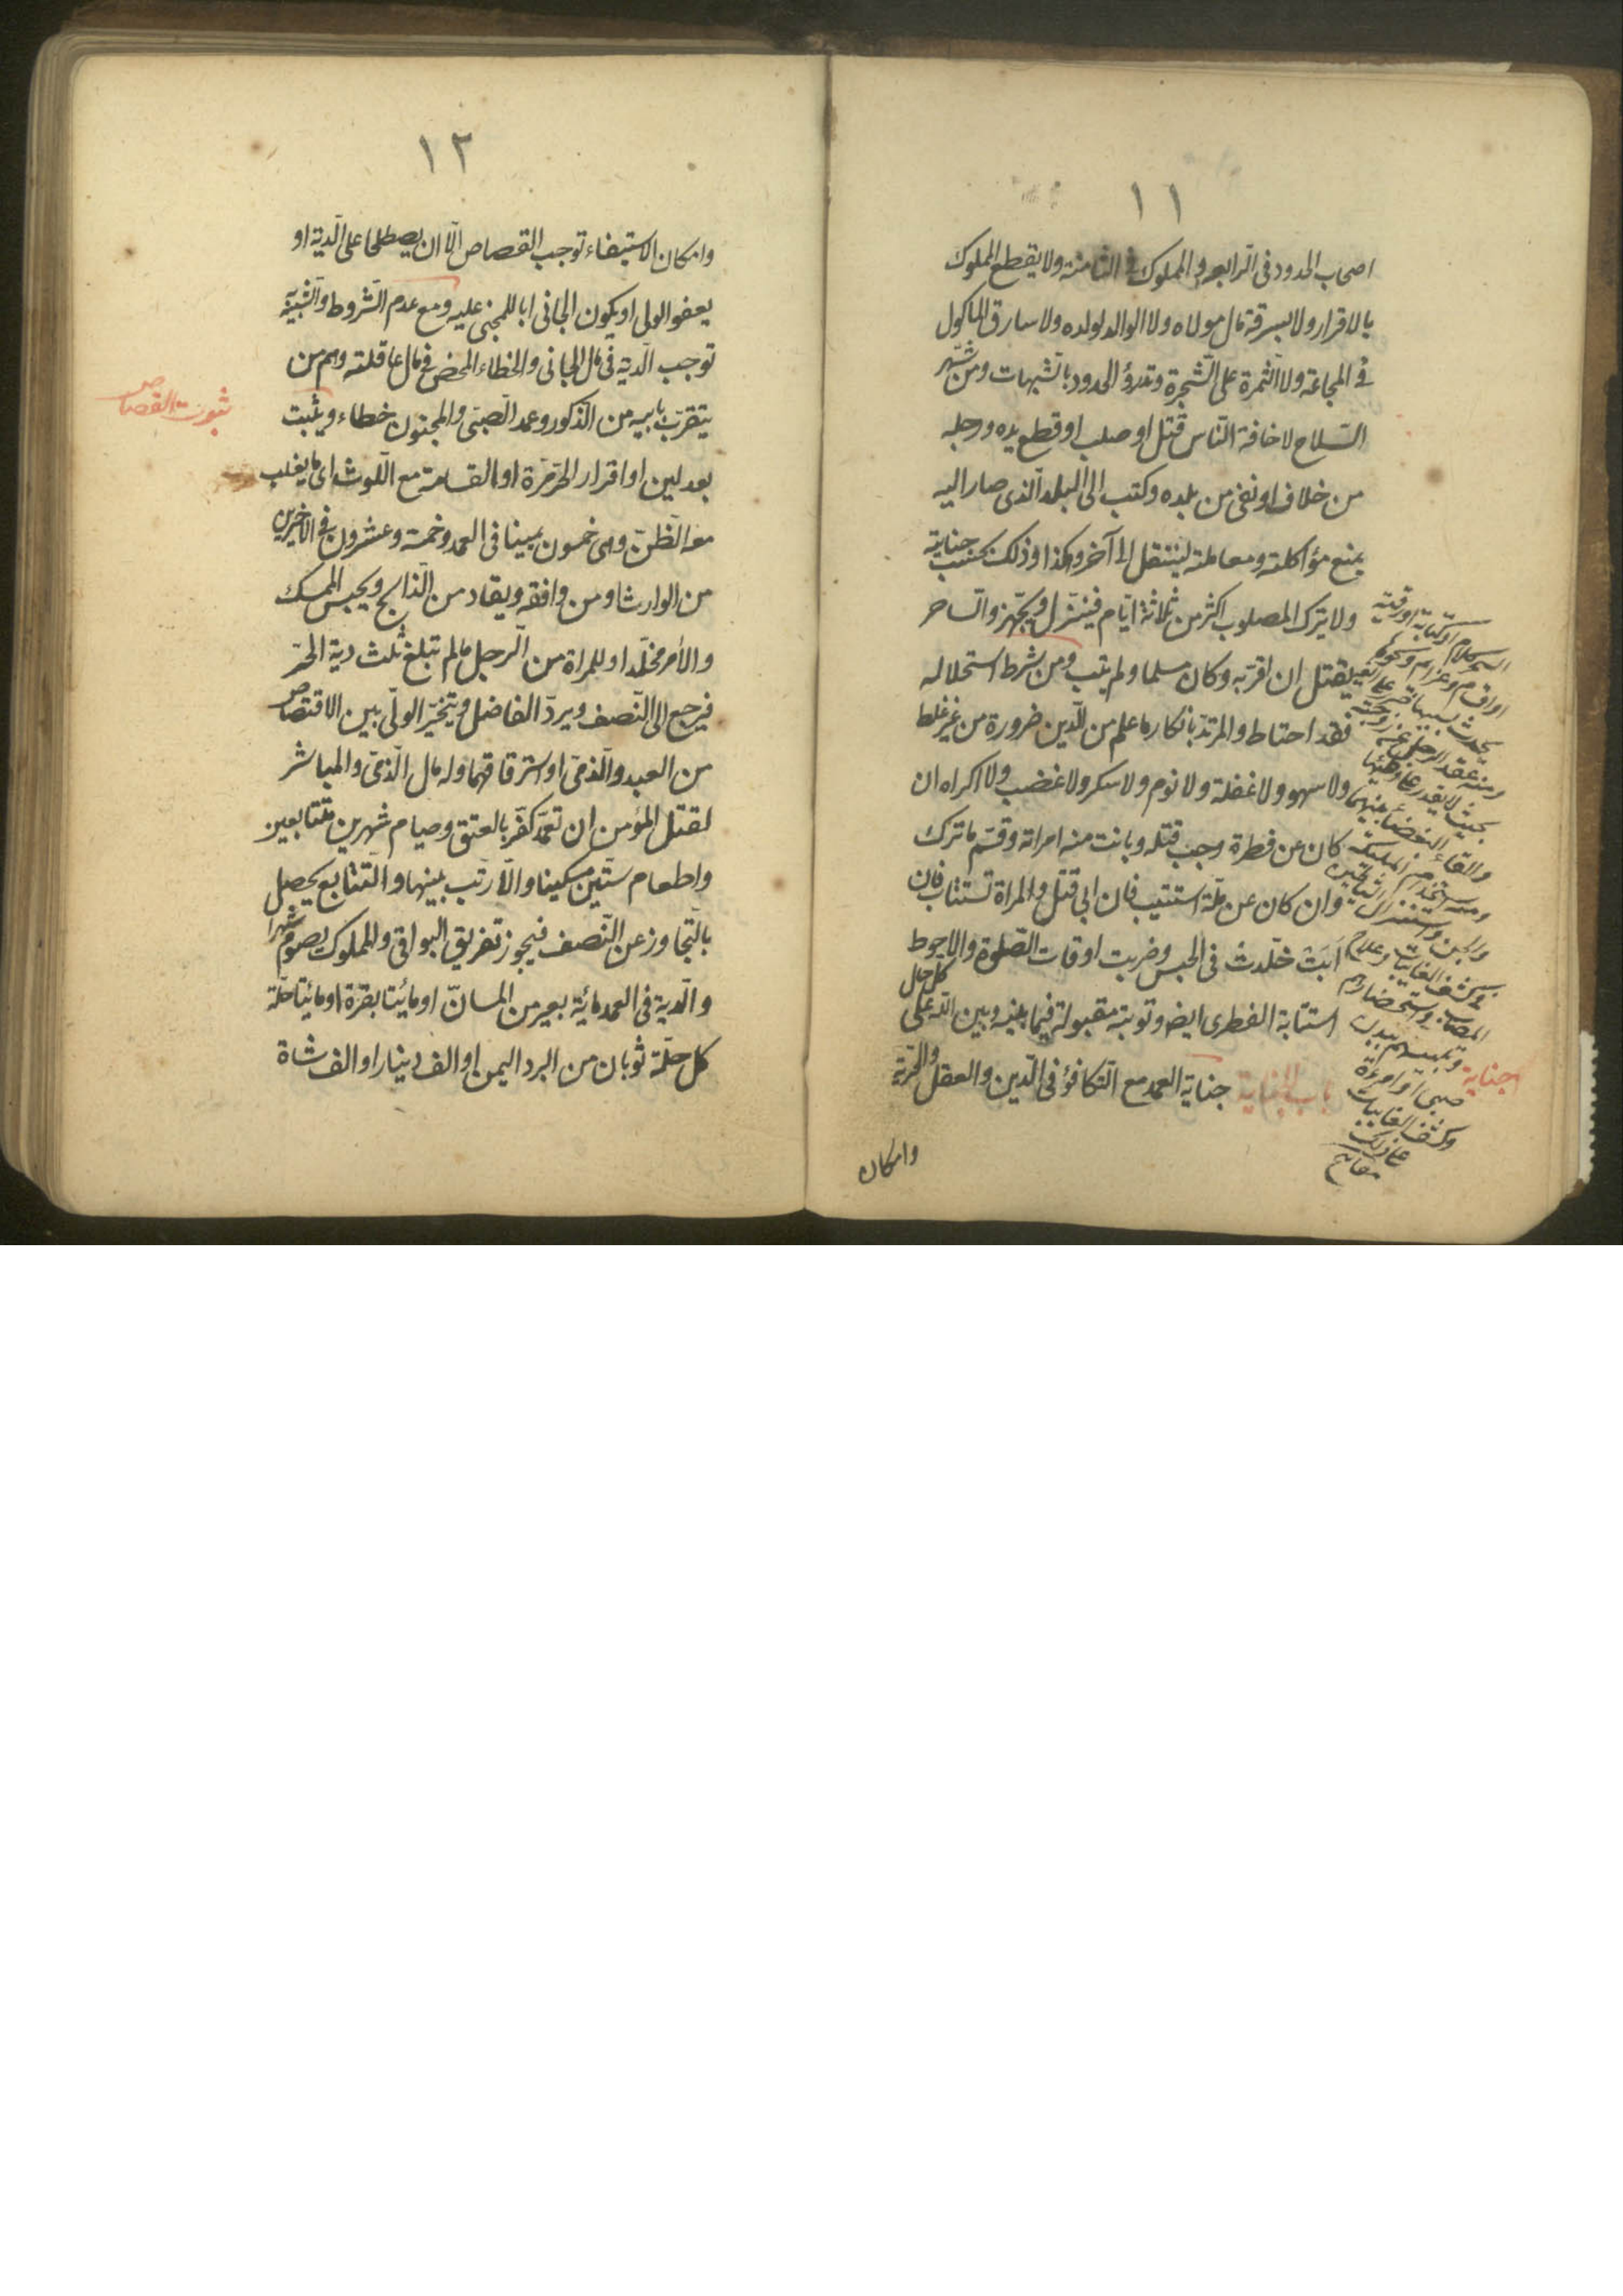 ١١
اصحاب الحدود فى الرابعه والمملوك فى الثامنة ولا يقطع المملوك
بالاقرار ولا بسرقة مال مولاه ولا الوالد لولده ولا سارق المأكول
فى المجاعة ولا الثمرة على الشجرة وتدرؤ الحدود بالشبهات ومن شهر
السّلاح لاخافة النّاس قتل او صلب او قطع يده ورجله
من خلاف او نفى من بلده وكتب الى البلد الّذى صار اليه
بمنع مؤاكلته ومعاملته لينتقل الى آخر وهكذا وذلك بحسب جنايته
ولا يترك المصلوب اكثر من ثلاثة ايّام فينزل ويجهّز والسّاحر
يقتل ان اقرّ به وكان مسلما ولم يتب ومن شرط استحلاله
فقد احتاط والمرتدّ بانكار ما علم من الدّين ضرورة من غير غلط
ولا سهو ولا غفلة ولا نوم ولا سكر ولا غضب ولا اكراه ان
كان عن فطرة وجب قتله وبانت منه امراته وقسّم ما ترك
وان كان عن ملّة استتيب فان ابى قتل والمراة تستتاب فان
ابت خلّدت فى الحبس وضربت اوقات الصّلوة والاحوط
استتابة الفطرى ايض وتوبته مقبولة فيما بينه وبين اللّه على كل حال
باب الجناية جناية العمد مع التّكافؤ فى الدّين والعقل والحرّية
وامكان
السحر كلام او كتابة او رقية
او اقسام وعزايم ونحوها
يحدث بسببها ضرر على الغير
ومنه عقد الرجل عن زوجته
بحيث لا يقدر على وطئها
والقاء البغضاء بينهما
ومنه استخدام الملئكة
والجن واستنزال الشياطين
فى كشف الغايبات وعلاج
المصاب واستحضارهم
وتلبيسهم ببدن
صبى او امرءة
وكشف الغايبات
على ذلك
مفاتيح
جناية
١٢
وامكان الاستيفاء توجب القصاص الّا ان يصطلحا على الدّية او
يعفو الولى او يكون الجانى ابا للمجنى عليه ومع عدم الشّروط والشّبيه
توجب الدّية فى مال الجانى والخطاء المحض فى مال عاقلته وهم من
يتقرّب بابيه من الذّكور وعمد الصّبىّ والمجنون خطاء ويثبت
بعدلين او اقرار الحرّ مرّة او القسامة مع اللّوث اى ما يغلب
معه الظّنّ وهى خمسون يمينا فى العمد وخمسة وعشرون فى الاخيرين
من الوارث او من وافقه ويقاد من الذّابح ويحبس الممسك
والآمر مخلّدا وللمراة من الرّجل مالم تبلغ ثلث دية الحرّ
فيرجع الى النّصف ويردّ الفاضل ويتخيّر الولىّ بين الاقتصاص
من العبد والذّمىّ او استرقاقهما وله مال الذّمىّ والمباشر
لقتل المؤمن ان تعمّد كفّر بالعتق وصيام شهرين متتابعين
واطعام ستّين مسكينا والّا رتّب بينها والتّتابع يحصل
بالتّجاوز عن النّصف فيجوز تفريق البواقى والمملوك يصوم شهرا
والدّية فى العمد مائة بعير من المسانّ او مائتا بقرة او مائتا حلّة
كل حلّة ثوبان من البرد اليمن او الف دينار او الف شاة
ثبوت القصاص